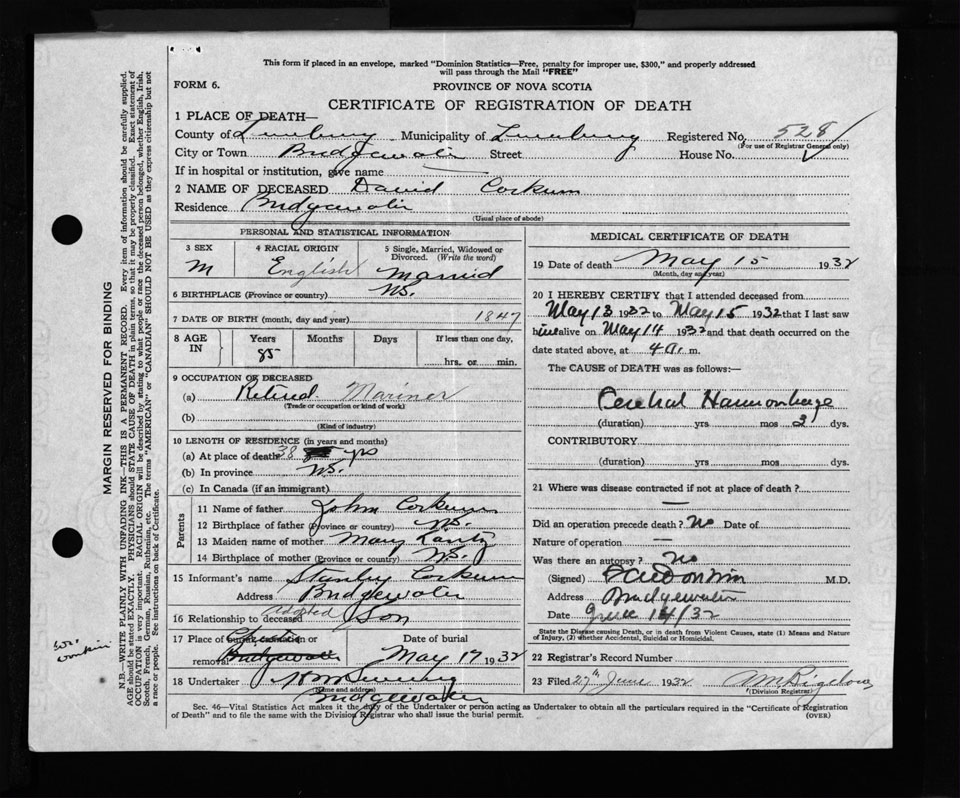 This form if placed in an envelope, marked "Dominion Statistics—Free, penalty for improper use, $300," and properly addressed
will pass through the Mail "FREE"
FORM 6.
PROVINCE OF NOVA SCOTIA
CERTIFICATE OF REGISTRATION OF DEATH
1 PLACE OF DEATH—
County of Lunenburg Municipality of Lunenburg Registered No. 528
(For use of Registrar General only)
City or Town Bridgewater Street House No.
If in hospital or institution, give name
2 NAME OF DECEASED David Corkum
Residence Bridgewater
(Usual place of abode)
PERSONAL AND STATISTICAL INFORMATION
3 SEX 4 RACIAL ORIGIN 5 Single, Married, Widowed or Divorced. (Write the word)
M English Married
6 BIRTHPLACE (Province or country) NS.
7 DATE OF BIRTH (month, day and year) 1847
8 AGE IN Years Months Days If less than one day,
85 hrs. or min.
9 OCCUPATION OF DECEASED
(a) Retired Mariner
(Trade or occupation or kind of work)
(b)
(Kind of industry)
10 LENGTH OF RESIDENCE (in years and months)
(a) At place of death 38 yrs
(b) In province NS.
(c) In Canada (if an immigrant)
Parents
11 Name of father John Corkum
12 Birthplace of father (Province or country) NS.
13 Maiden name of mother Mary Lantz
14 Birthplace of mother (Province or country) NS.
15 Informant's name Stanley Corkum
Address Bridgewater
16 Relationship to deceased adopted Son
17 Place of burial, cremation or Date of burial
removal Bridgewater May 17 1932
18 Undertaker
(Name and address)
Bridgewater
MEDICAL CERTIFICATE OF DEATH
19 Date of death May 15 1932
(Month, day and year)
20 I HEREBY CERTIFY that I attended deceased from
May 13 1932 to May 15 1932 that I last saw
him alive on May 14 1932 and that death occurred on the
date stated above, at 4 a. m.
The CAUSE of DEATH was as follows:—
Cerebral Haemorrhage
(duration) yrs mos 2 dys.
CONTRIBUTORY
(duration) yrs mos dys.
21 Where was disease contracted if not at place of death?
—
Did an operation precede death? No Date of
Nature of operation —
Was there an autopsy? No
(Signed) M.D.
Address Bridgewater
Date June 14/32
State the Disease causing Death, or in death from Violent Causes, state (1) Means and Nature
of Injury, (2) whether Accidental, Suicidal or Homicidal.
22 Registrar's Record Number
23 Filed 27th June 1932 Bigelow
(Division Registrar)
Sec. 46—Vital Statistics Act makes it the duty of the Undertaker or person acting as Undertaker to obtain all the particulars required in the "Certificate of Registration
of Death" and to file the same with the Division Registrar who shall issue the burial permit. (OVER)
MARGIN RESERVED FOR BINDING
N.B.—WRITE PLAINLY WITH UNFADING INK—THIS IS A PERMANENT RECORD. Every item of information should be carefully supplied.
AGE should be stated EXACTLY. PHYSICIANS should STATE CAUSE OF DEATH in plain terms, so that it may be properly classified. Exact statement of
OCCUPATION is very important. RACIAL ORIGIN will be described by stating to what people or race the deceased person belonged, whether English, Irish,
Scotch, French, German, Russian, Ruthenian, etc. The terms "AMERICAN" or "CANADIAN" SHOULD NOT BE USED as they express citizenship but not
a race or people. See instructions on back of Certificate.